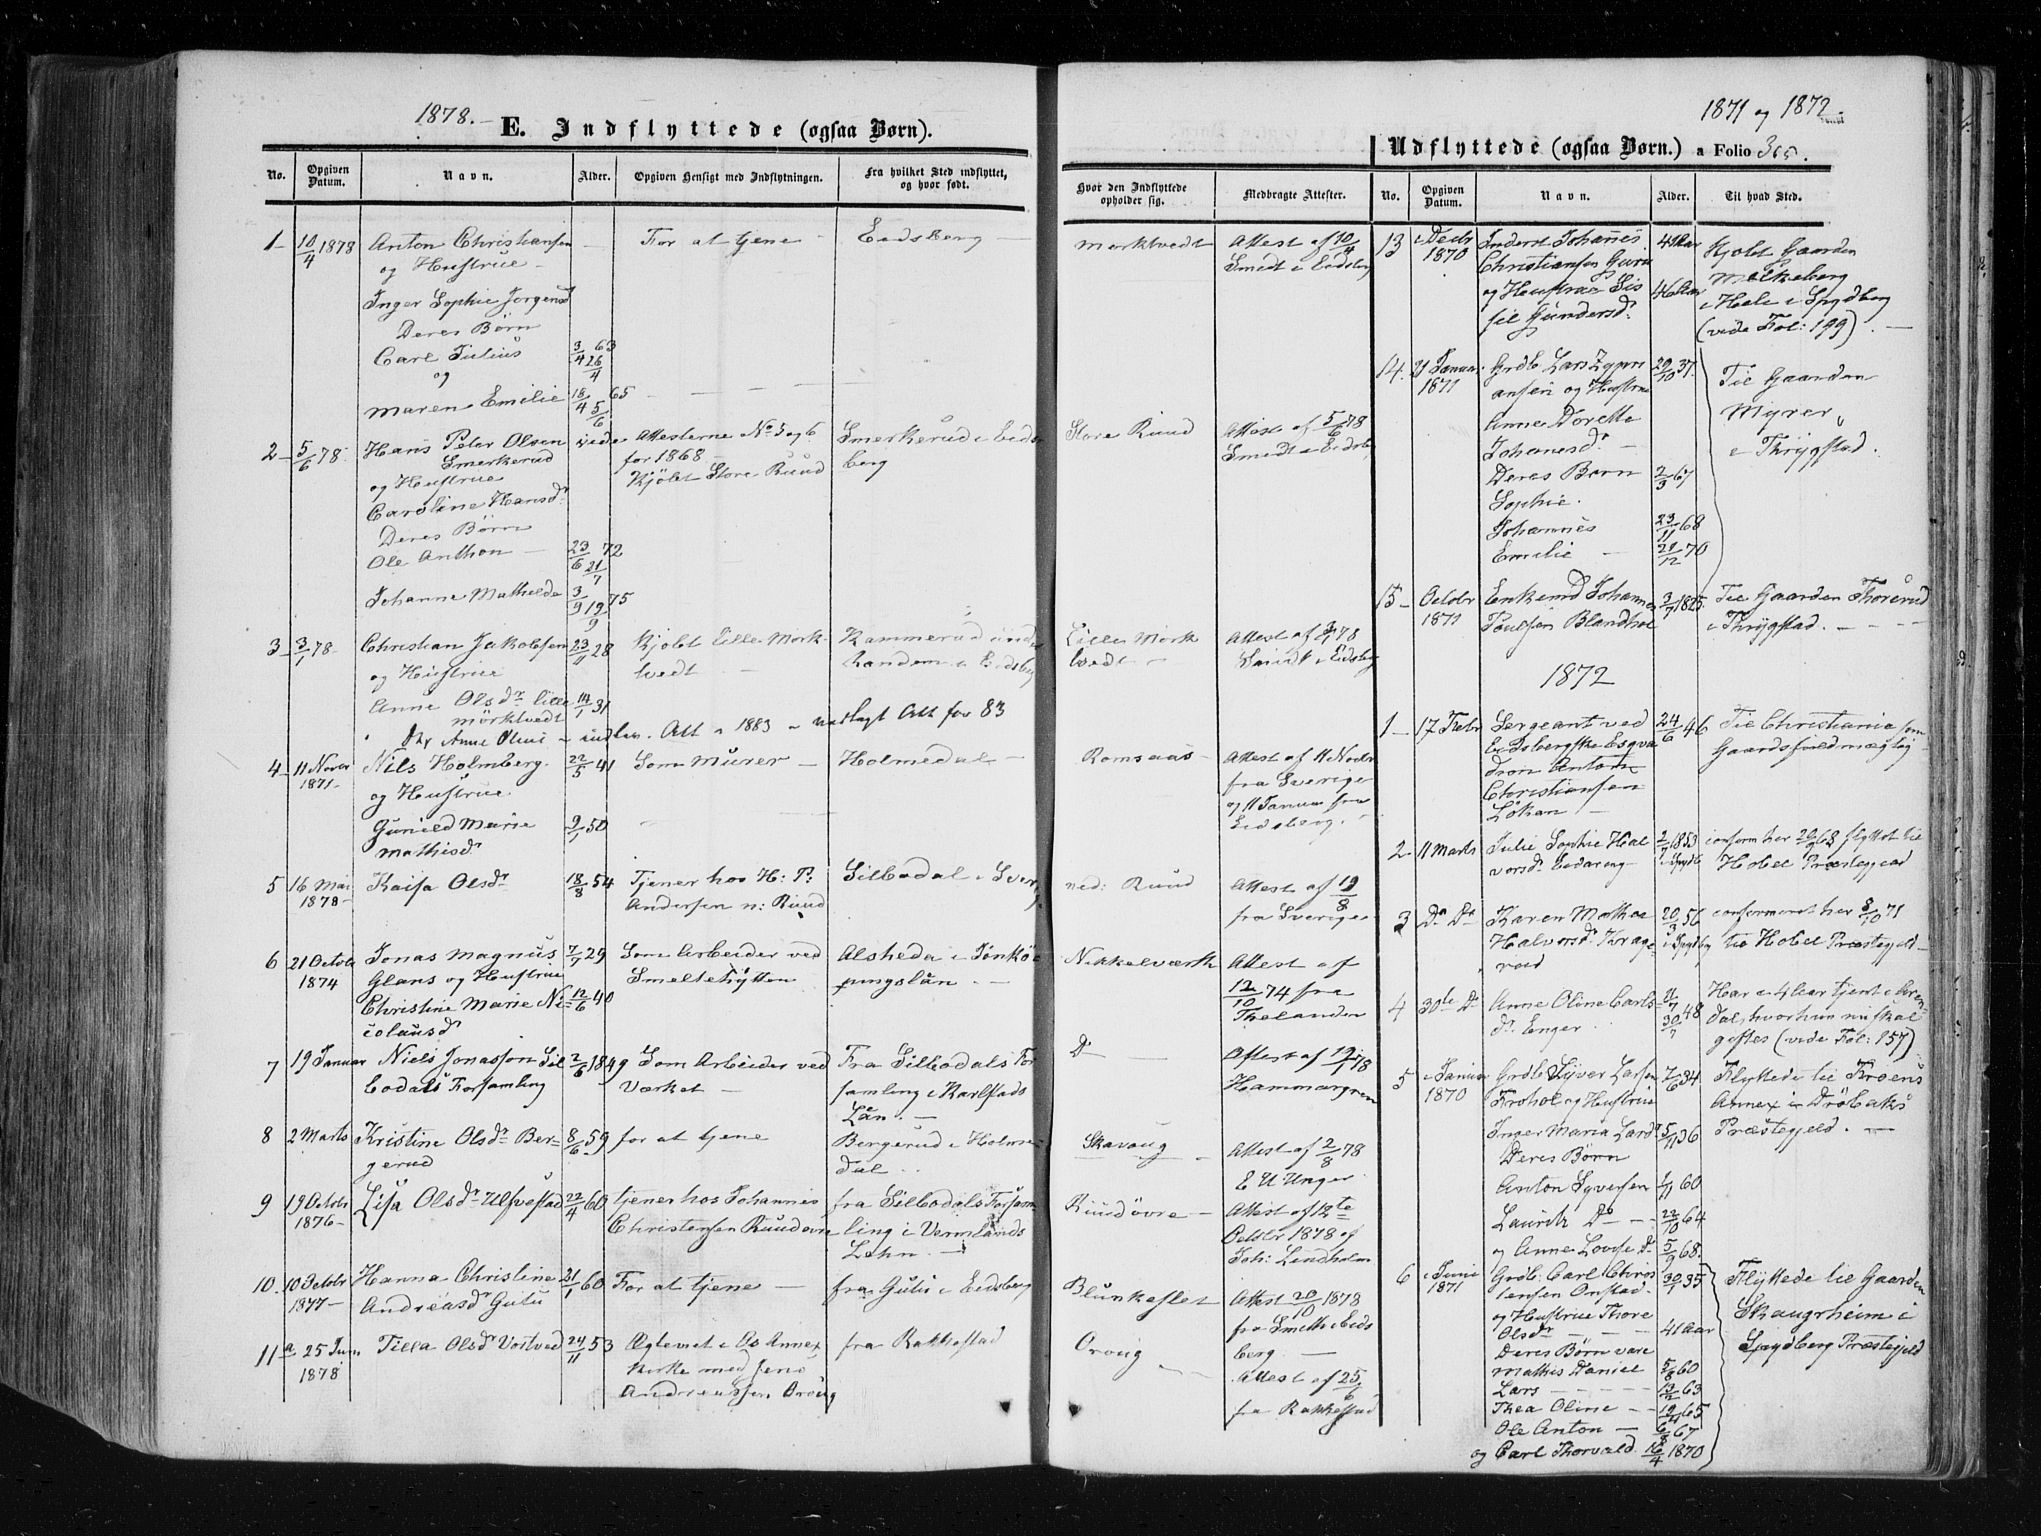 1878.-
E. Indflyttede (ogsaa Børn).
No. Opgiven Datum. Navn. Alder. Opgiven Hensigt med Indflytningen. Fra hvilket Sted indflyttet, og hvor født.
1 10/4 1878 Anton Christiansen — For at tjene — Eedsberg
og Hustrue
Inger Sophie Jørgensd
Deres Børn
Carl Julius 3/4 63
26/4
og
Maren Emilie 18/4 65
5/6
2 5/6 78 Hans Peter Olsen vide Attesterne No 5 og 6 Smerkerud i Eeds
Smerkerud for 1868 berg
og Hustrue Kjöbt Store Ruud
Caroline Hansdr
Deres Børn
Ole Anthon 23/6 72
21/7
Johanne Mathilde 3/9 75
19/9
3 3/1 78 Christian Jakobsen 23/11 28 Kjöbt Lille Mørk- Kammerud
og Hustrue tvedt i Eidsberg
Anne Olsdr Lille 14/1 31
mörktvedt
Anne Oline — Att 1883 nedlagt Att for 83
4 11 Novbr 1871 Nils Holmberg 22/5 41 Som Murer — Holmedal
og Hustrue
Gunild Marie 9/1 50
Mathisdr
5 16 Mai 1878 Kaisa Olsdr 18/8 54 Tjener hos H: P: Silbodal i Sverg
Andersen n: Ruud
6 21 Octob 1874 Jonas Magnus 7/7 29 Som Arbeider ved Alsheda i Jönkö
Glans og Hustrue Smeltehytten pingslän
Christine Marie Ni- 12/6 40
colausdr
7 19 Januar Niels Jonasson Sil 2/6 1849 Som Arbeider ved Fra Silbodals For
bodals Forsamling Værket samling i Karlstads
Län.
8 2 Marts Kristine Olsdr Ber- 8/6 59 for at tjene Bergerud i Holme-
gerud dal
9 19 Octobr 1876 Lisa Olsdr Ulfvestad 22/4 60 tjener hos Johannis fra Silbodals Forsam
Christensen Ruud øvre ling i Vermlands
Lehn.
10. 10 Octobr 1877 Hanna Christine 21/1 60 For at tjene fra Gutu i Eedsberg
Andreasdr Gutu
11a 25 Jun 1878 Tilla Olsdr Vostved 24/11 53 Ægteviet i Os Annex fra Rakkestad
kirke med Jens
Andreassen Oroug
1871 og 1872.
Udflyttede (ogsaa Børn.) a Folio 365.
Hvor den Indflyttede opholder sig. Medbragte Attester. No. Opgiven Datum. Navn. Alder. Til hvad Sted.
Morktvedt Attest af 10/4
Smedt i Eedsbg
Store Ruud Attest af 5/6 78
Smedt i Eedsbg
Lille Mørk Attest af 3/1 78
tvedt Smidt i Eidsbg
Romsaas Attest af 11 Novbr
fra Sverige
og 11 Januar fra
Eidsberg.
ned: Ruud Attest af 19/8
fra Sverige
Nikkelværk Attest af
12/10 74 fra
Thelander
Do Attest af 19/1 78
Hammargren
Skavoug Attest af 2/8 78
E U Unger
Ruud øvre Attest af 12te
Octbr 1878 af
Joh: Lindholm
Blunkeflet Attest 20/10 1878
fra Smith i Eeds
berg
Oroug Attest af 25/6
fra Rakkestad
13 i Decbr 1870 Inderst Johanes 44 Aar Kjøbt Gaarden
Christiansen
og Hustrue Sis 46 Aar i Spydberg
sil Gundersdr (vide Fol: 199).
14. 21 Januar 1871 Grdb Lars 20/10 37. Til Gaarden
ansen og Hustrue Myrer
Anne Dorette i Thrygstad.
Johanesdr
Deres Børn 2/3 67
Sophie.
Johannes 23/11 68
Emilie 21/12 70
15 Octobr 1871 Enkemd Johannes 3/7 1825. Til Gaarden Thorerud
Poulsen Blandhol i Thrygstad.
1872
1 17 Febr Sergeant ved 24/6 46 Til Christiania som
Eidsbergske Esqva Gaardsfuldmægtig
dron Anton
Christiansen
Løken
2 11 Marts Julie Sophie Hal 2/7 1853 conform her 20/9 68 flyttet til
vorsdr i Spydb Hobøl Præstegjeld
3 Do Do Karen Mathea 20/3 56 conformeret her 8/10 71
Halvorsdr Krage- i Spydbg til Hobøl Præstegjeld
vold
4 30te Do Anne Oline Carls- 48 Har i 4 Aar tjent i Aren-
dr Enger 30/7 dal, hvor hun nu skal
giftes (vide Fol: 157)
5 i Januar 1870 Grdb Syver Larsen 7/6 34 Flyttede til Kroens
Frohol og Hustrue Annex i Drøbaks
Inger Maria Larsdr 5/11 36 Præstegjeld.
Deres Børn
Anton Syversen 1/11 60
Lauritz Do 22/10 64
og Anne Lovise Do 5/9 68
6 i Juni 1871 Grdb. Carl Chris 30/1 35 Flyttede til Gaarden
tensen Onstad Skaugrheim i
og Hustrue Thore Spydberg Præstegjeld
Olsdr 41 Aar
Deres Børn vare
Mathis Daniel 5/8 60
Lars 13/2 63
Thea Oline 65
Ole Anton 67
og Carl Thorvald 16/4 1870